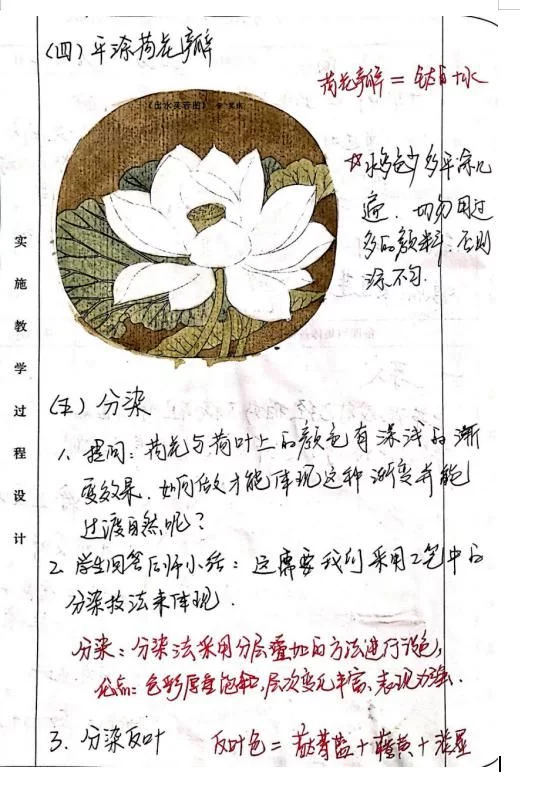 (四) 平涂荷花瓣
荷花瓣 = 钛白+水
《出水芙蓉图》
☆水多色少多平涂几
遍. 切勿用过
多的颜料. 否则
涂不匀.
实施教学过程设计
(五) 分染
1、提问: 荷花与荷叶上的颜色有深浅的渐
变效果. 如何做才能体现这种渐变并能
过渡自然呢?
2. 学生回答后师小结: 这需要我们采用工笔中的
分染技法来体现.
分染: 分染法采用分层叠加的方法进行染色,
优点: 色彩厚重饱和, 层次变化丰富、表现力强.
3. 分染反叶
反叶色 = 酞菁蓝+藤黄+淡墨